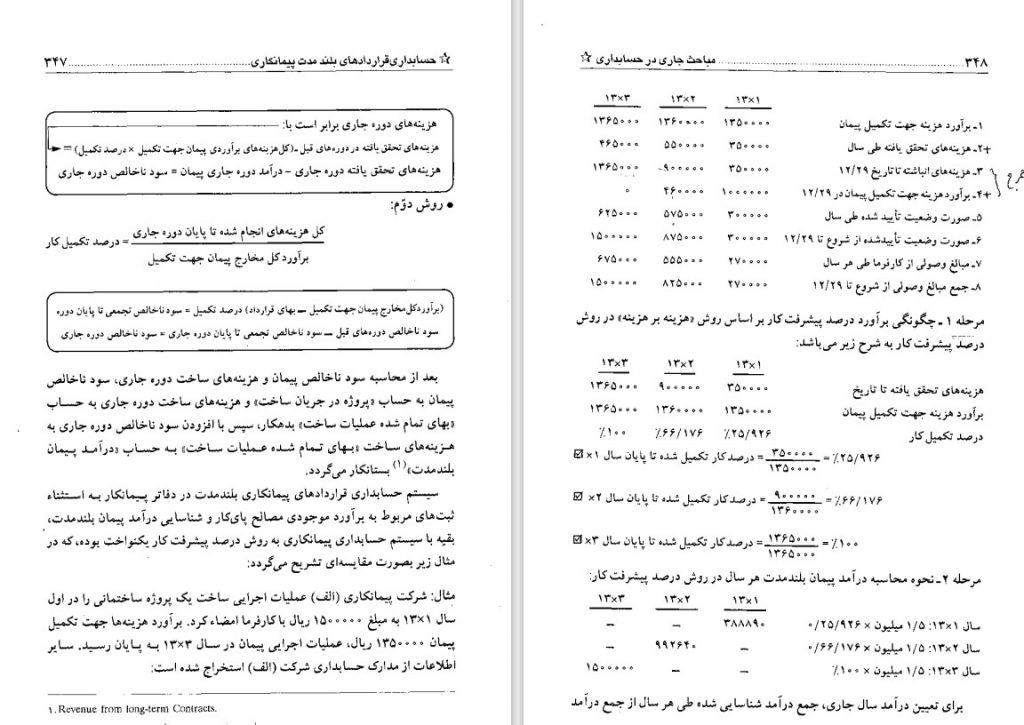 ☆ حسابداری قراردادهای بلند مدت پیمانکاری ........ ۳۴۷
هزینه‌های دوره جاری برابر است با:
هزینه‌های تحقق یافته در دوره‌های قبل ـ (کل هزینه‌های برآوردی پیمان جهت تکمیل × درصد تکمیل) =
هزینه‌های تحقق یافته دوره جاری − درآمد دوره جاری پیمان = سود ناخالص دوره جاری
● روش دوّم:
کل هزینه‌های انجام شده تا پایان دوره جاری
درصد تکمیل کار =
برآورد کل مخارج پیمان جهت تکمیل
(برآورد کل مخارج پیمان جهت تکمیل ــ بهای قرارداد) درصد تکمیل = سود ناخالص تجمعی تا پایان دوره
سود ناخالص دوره‌های قبل ــ سود ناخالص تجمعی تا پایان دوره جاری = سود ناخالص دوره جاری
بعد از محاسبه سود ناخالص پیمان و هزینه‌های ساخت دوره جاری، سود ناخالص
پیمان به حساب «پروژه در جریان ساخت» و هزینه‌های ساخت دوره جاری به حساب
«بهای تمام شده عملیات ساخت» بدهکار، سپس با افزودن سود ناخالص دوره جاری به
هزینه‌های ساخت «بهای تمام شده عملیات ساخت» به حساب «درآمد پیمان
بلندمدت»(۱) بستانکار می‌گردد.
سیستم حسابداری قراردادهای پیمانکاری بلندمدت در دفاتر پیمانکار به استثناء
ثبت‌های مربوط به برآورد موجودی مصالح پای‌کار و شناسایی درآمد پیمان بلندمدت،
بقیه با سیستم حسابداری پیمانکاری به روش درصد پیشرفت کار یکنواخت بوده، که در
مثال زیر بصورت مقایسه‌ای تشریح می‌گردد:
مثال: شرکت پیمانکاری (الف) عملیات اجرایی ساخت یک پروژه ساختمانی را در اول
سال ۱×۱۳ به مبلغ ۱۵۰۰۰۰۰ ریال با کارفرما امضاء کرد. برآورد هزینه‌ها جهت تکمیل
پیمان ۱۳۵۰۰۰۰ ریال، عملیات اجرایی پیمان در سال ۳×۱۳ به پایان رسید. سایر
اطلاعات از مدارک حسابداری شرکت (الف) استخراج شده است:
۱. Revenue from long-term Contracts.
۳۴۸ ........ مباحث جاری در حسابداری ☆
۱×۱۳ ۲×۱۳ ۳×۱۳
۱ـ برآورد هزینه جهت تکمیل پیمان ۱۳۵۰۰۰۰ ۱۳۶۰۰۰۰ ۱۳۶۵۰۰۰
+۲ـ هزینه‌های تحقق یافته طی سال ۳۵۰۰۰۰ ۵۵۰۰۰۰ ۴۶۵۰۰۰
۳ـ هزینه‌های انباشته تا تاریخ ۱۲/۲۹ ۳۵۰۰۰۰ ۹۰۰۰۰۰ ۱۳۶۵۰۰۰
+۴ـ برآورد هزینه جهت تکمیل پیمان در ۱۲/۲۹ ۱۰۰۰۰۰۰ ۴۶۰۰۰۰ ۰
۵ـ صورت وضعیت تأیید شده طی سال ۳۰۰۰۰۰ ۵۷۵۰۰۰ ۶۲۵۰۰۰
۶ـ صورت وضعیت تأییدشده از شروع تا ۱۲/۲۹ ۳۰۰۰۰۰ ۸۷۵۰۰۰ ۱۵۰۰۰۰۰
۷ـ مبالغ وصولی از کارفرما طی هر سال ۲۷۰۰۰۰ ۵۵۵۰۰۰ ۶۷۵۰۰۰
۸ـ جمع مبالغ وصولی از شروع تا ۱۲/۲۹ ۲۷۰۰۰۰ ۸۲۵۰۰۰ ۱۵۰۰۰۰۰
مرحله ۱ ـ چگونگی برآورد درصد پیشرفت کار بر اساس روش «هزینه بر هزینه» در روش
درصد پیشرفت کار به شرح زیر می‌باشد:
۱×۱۳ ۲×۱۳ ۳×۱۳
هزینه‌های تحقق یافته تا تاریخ ۳۵۰۰۰۰ ۹۰۰۰۰۰ ۱۳۶۵۰۰۰
برآورد هزینه جهت تکمیل پیمان ۱۳۵۰۰۰۰ ۱۳۶۰۰۰۰ ۱۳۶۵۰۰۰
درصد تکمیل کار ٪۲۵/۹۲۶ ٪۶۶/۱۷۶ ٪۱۰۰
☑ درصد کار تکمیل شده تا پایان سال ۱× = ۳۵۰۰۰۰ / ۱۳۵۰۰۰۰ = ٪۲۵/۹۲۶
☑ درصد کار تکمیل شده تا پایان سال ۲× = ۹۰۰۰۰۰ / ۱۳۶۰۰۰۰ = ٪۶۶/۱۷۶
☑ درصد کار تکمیل شده تا پایان سال ۳× = ۱۳۶۵۰۰۰ / ۱۳۶۵۰۰۰ = ٪۱۰۰
مرحله ۲ ـ نحوه محاسبه درآمد پیمان بلندمدت هر سال در روش درصد پیشرفت کار:
۱×۱۳ ۲×۱۳ ۳×۱۳
سال ۱×۱۳: ۱/۵ میلیون × ۰/۲۵/۹۲۶ ۳۸۸۸۹۰ – –
سال ۲×۱۳: ۱/۵ میلیون × ۰/۶۶/۱۷۶ – ۹۹۲۶۴۰ –
سال ۳×۱۳: ۱/۵ میلیون × ۱۰۰٪ – – ۱۵۰۰۰۰۰
برای تعیین درآمد سال جاری، جمع درآمد شناسایی شده طی هر سال از جمع درآمد